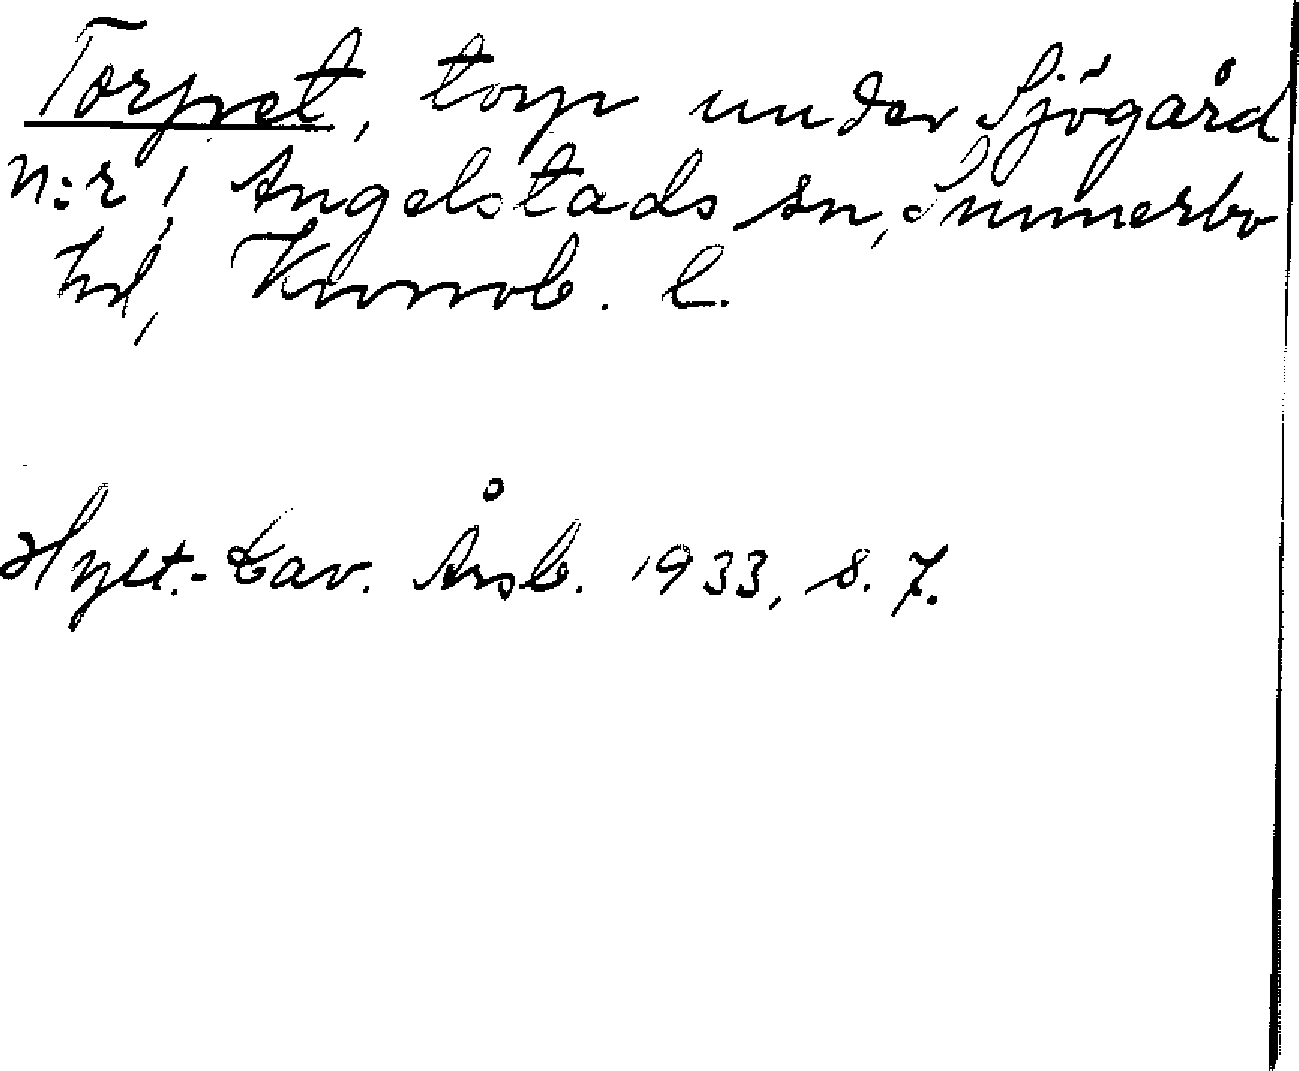 Torpet, torp under Sjögård
N:r 1 Angelstads sn, Sunnerbo
hd, Kronob. l.
Hylt.-Cav. Årsb. 1933, s. 7.